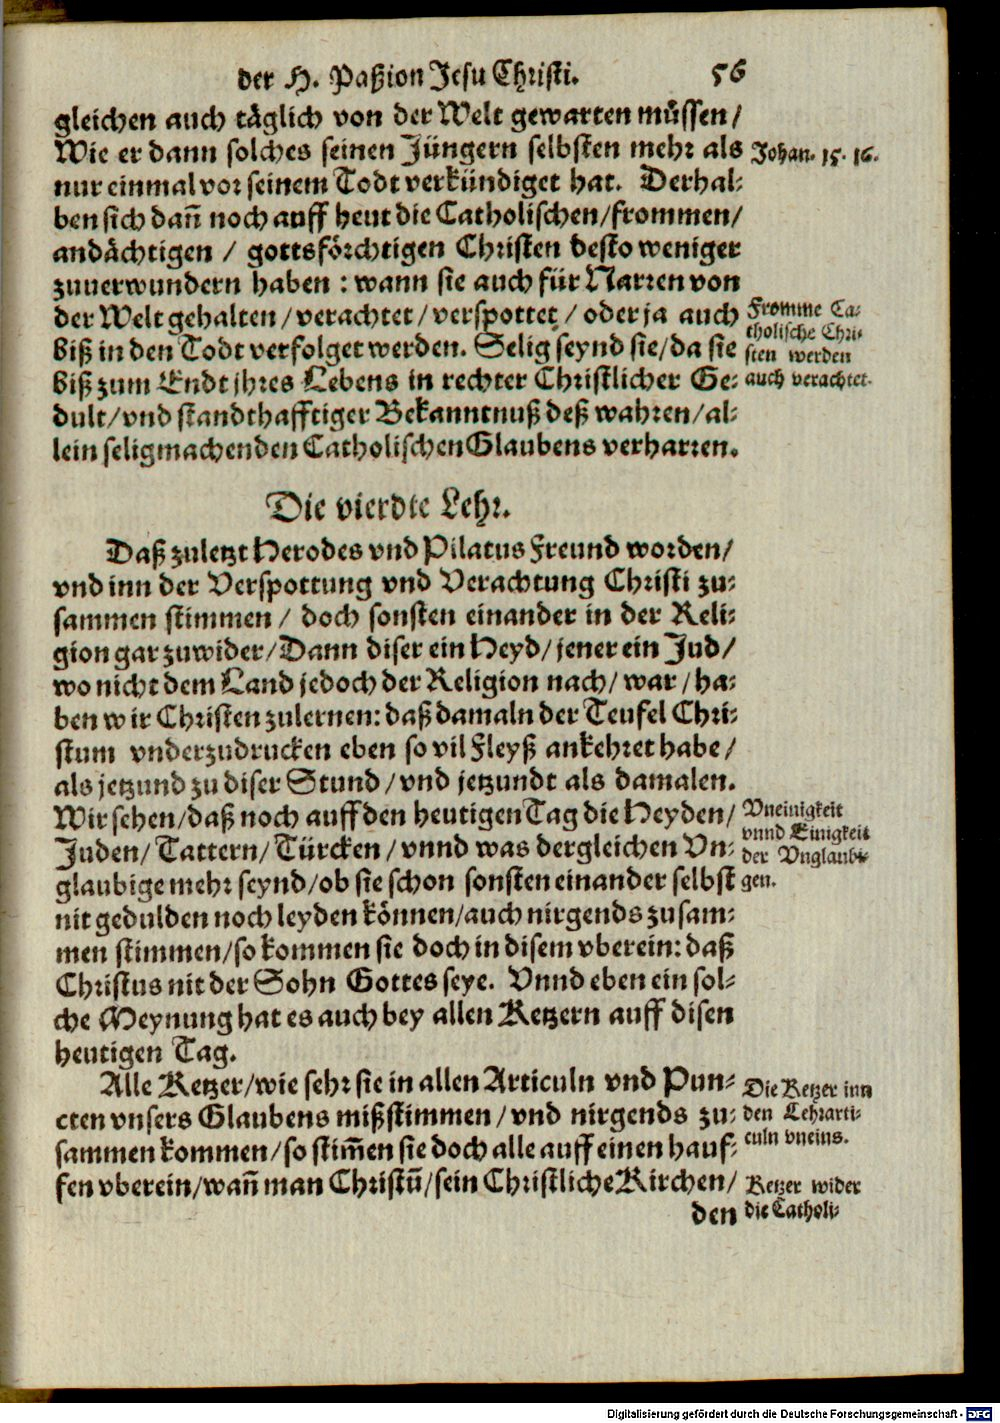 der H. Paßion Jesu Christi. 56
gleichen auch täglich von der Welt gewarten müssen/
Wie er dann solches seinen Jüngern selbsten mehr als
Johan. 15. 16.
nur einmal vor seinem Todt verkündiget hat. Derhal-
ben sich dañ noch auff heut die Catholischen/frommen/
andächtigen / gottsförchtigen Christen desto weniger
zuuerwundern haben : wann sie auch für Narren von
der Welt gehalten/verachtet/verspottet/oder ja auch
biß in den Todt verfolget werden. Selig seynd sie/da sie
biß zum Endt jhres Lebens in rechter Christlicher Ge-
dult/vnd standthafftiger Bekanntnuß deß wahren/al-
lein seligmachenden Catholischen Glaubens verharren.
Fromme Ca-
tholische Chri-
sten werden
auch verachtet.
Die vierdte Lehr.
Daß zuletzt Herodes vnd Pilatus Freund worden/
vnd inn der Verspottung vnd Verachtung Christi zu-
sammen stimmen/ doch sonsten einander in der Reli-
gion gar zuwider/Dann diser ein Heyd/jener ein Jud/
wo nicht dem Land jedoch der Religion nach/war/ha-
ben wir Christen zulernen: daß damaln der Teufel Chri-
stum vnderzudrucken eben so vil Fleyß ankehret habe/
als jetzund zu diser Stund/vnd jetzundt als damalen.
Wir sehen/daß noch auff den heutigen Tag die Heyden/
Juden/Tattern/Türcken/vnnd was dergleichen Vn-
glaubige mehr seynd/ob sie schon sonsten einander selbst
nit gedulden noch leyden können/auch nirgends zusam-
men stimmen/so kommen sie doch in disem vberein: daß
Christus nit der Sohn Gottes seye. Vnnd eben ein sol-
che Meynung hat es auch bey allen Ketzern auff disen
heutigen Tag.
Vneinigkeit
vnnd Einigkeit
der Vnglaubi-
gen.
Alle Ketzer/wie sehr sie in allen Articuln vnd Pun-
cten vnsers Glaubens mißstimmen/vnd nirgends zu-
sammen kommen/so stim̃en sie doch alle auff einen hauf-
fen vberein/wañ man Christũ/sein Christliche Kirchen/
den
Die Ketzer inn
den Lehrarti-
culn vneins.
Ketzer wider
die Catholi-
Digitalisierung gefördert durch die Deutsche Forschungsgemeinschaft - DFG